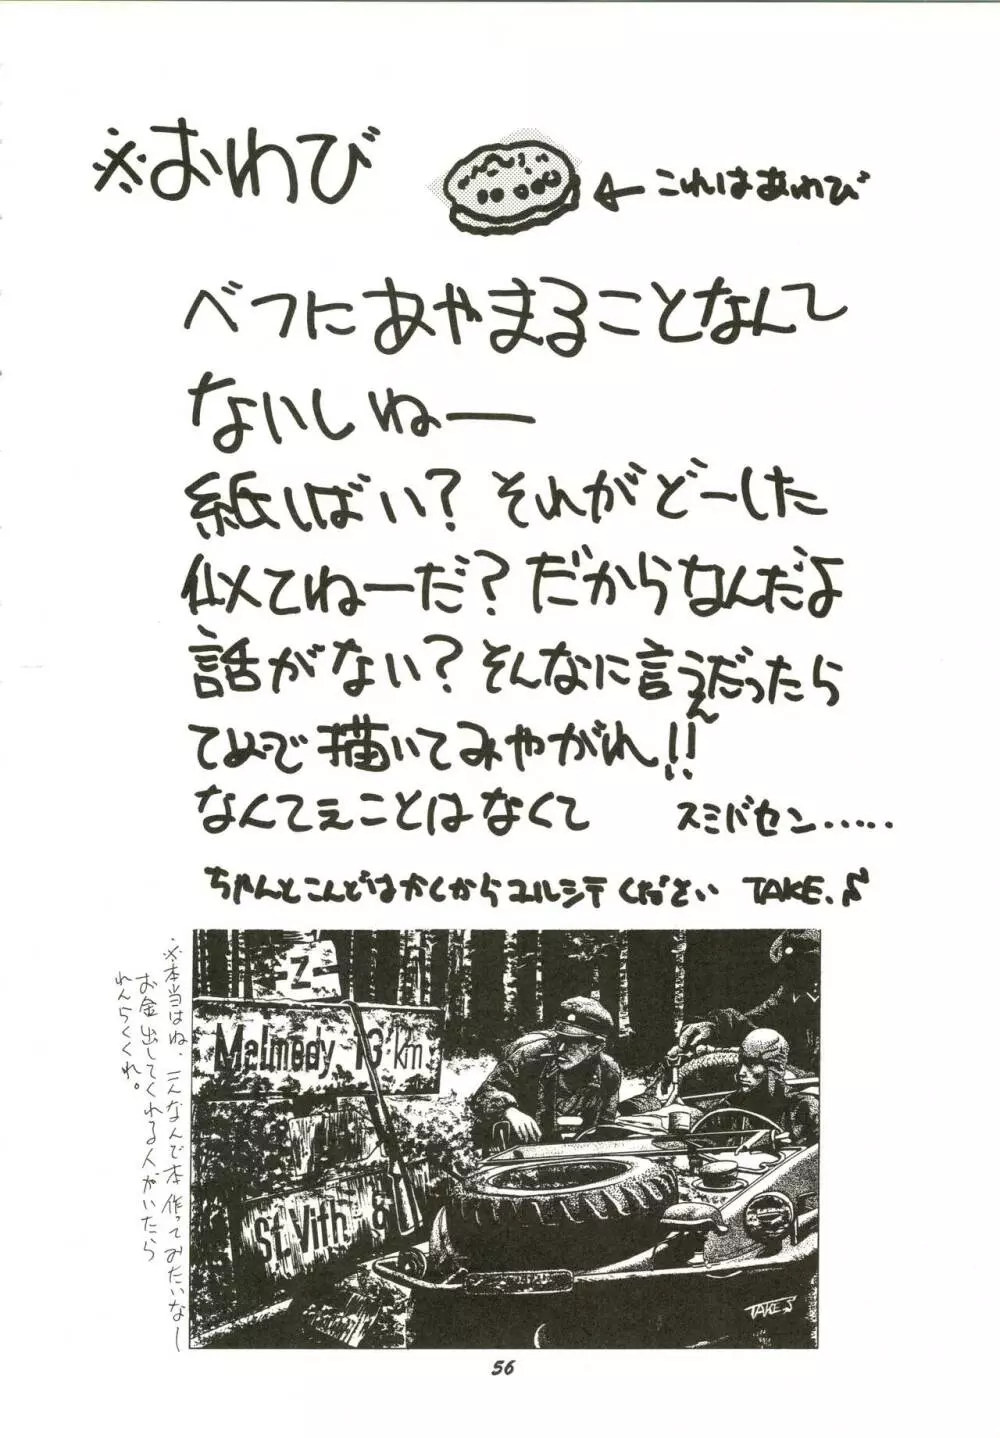 ※おわび
←これはあわび
ベフにあやまることなんて
ないしねー
紙しばい?それがどーした
似てねーだ?だからなんだよ
話がない?そんなに言うんだったら
てめーで描いてみやがれ!!
なんてぇことはなくて スミバセン……
ちゃんとこんどはかくからユルシテください TAKE.S
※本当はね、こんなんで本作ってみたいなー
お金出してくれる人がいたら
れんらくくれ。
-Z-
Malmedy 13 km
St.Vith 9
TAKE.S
56